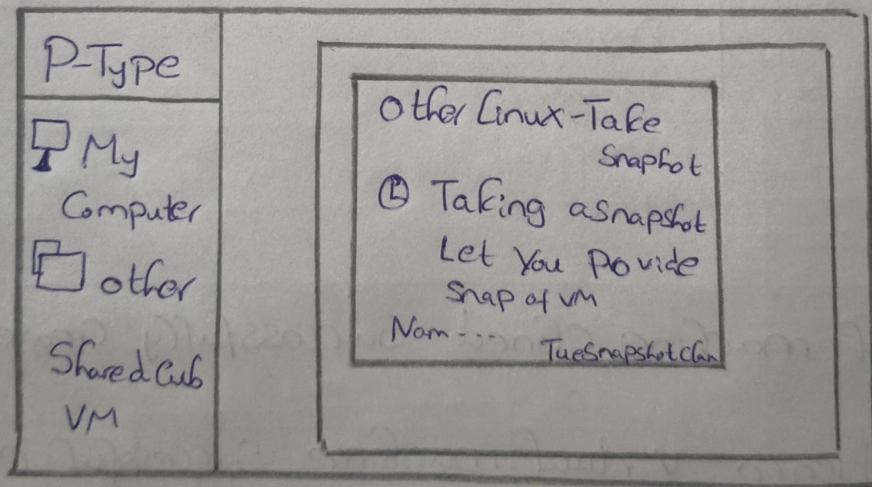 P-Type
My
Computer
other
Shared Cub
VM
Other Linux-Take
Snapshot
Taking a snapshot
Let You Provide
Snap of VM
Nam...
TueSnapshot